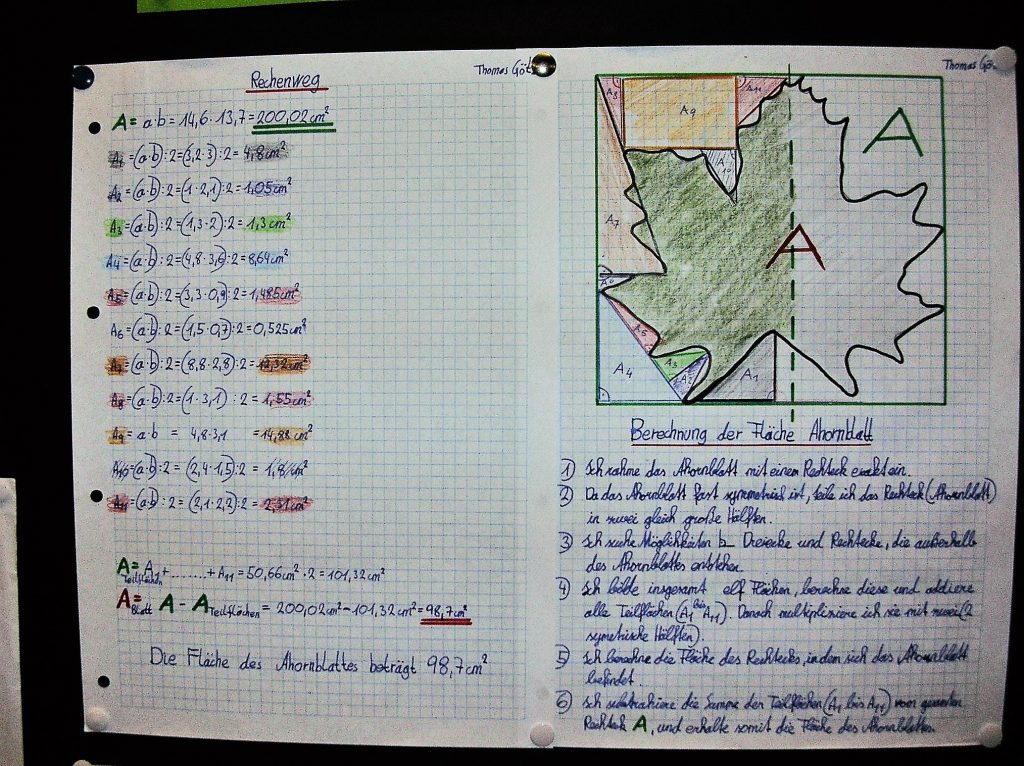 Rechenweg
Thomas Göt
A = a·b = 14,6·13,7 = 200,02cm²
A1 = (a·b):2 = (3,2·3):2 = 4,8cm²
A2 = (a·b):2 = (1·2,1):2 = 1,05cm²
A3 = (a·b):2 = (1,3·2):2 = 1,3cm²
A4 = (a·b):2 = (4,8·3,6):2 = 8,64cm²
A5 = (a·b):2 = (3,3·0,9):2 = 1,485cm²
A6 = (a·b):2 = (1,5·0,7):2 = 0,525cm²
A7 = (a·b):2 = (8,8·2,8):2 = 12,32cm²
A8 = (a·b):2 = (1·3,1):2 = 1,55cm²
A9 = a·b = 4,8·3,1 = 14,88cm²
A10 = (a·b):2 = (2,4·1,5):2 = 1,8cm²
A11 = (a·b):2 = (2,1·2,2):2 = 2,31cm²
A Teilflächen = A1 + ........ + A11 = 50,66cm²·2 = 101,32cm²
A Blatt = A - A Teilflächen = 200,02cm² - 101,32cm² = 98,7cm²
Die Fläche des Ahornblattes beträgt 98,7cm²
Thomas Gö
A8
A9
A11
A
A10
A7
A
A6
A5
A4
A3
A2
A1
Berechnung der Fläche Ahornblatt
1) Ich rahme das Ahornblatt mit einem Rechteck exakt ein.
2) Da das Ahornblatt fast symmetrisch ist, teile ich das Rechteck (Ahornblatt)
in zwei gleich große Hälften.
3) Ich suche Möglichkeiten Dreiecke und Rechtecke, die außerhalb
des Ahornblattes entstehen.
4) Ich bilde insgesamt elf Flächen, berechne diese und addiere
alle Teilflächen (A1 bis A11). Danach multipliziere ich sie mit zwei (2
symetrische Hälften).
5) Ich berechne die Fläche des Rechtecks, in dem sich das Ahornblatt
befindet.
6) Ich subtrahiere die Summe der Teilflächen (A1 bis A11) vom
Rechteck A, und erhalte somit die Fläche des Ahornblattes.